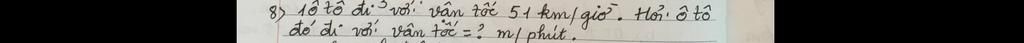 8) 1 ô tô đi với vận tốc 51 km/giờ. Hỏi ô tô
đó đi với vận tốc = ? m/phút.